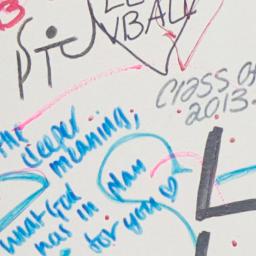 VBALL
CLASS OF
2013
the
deeper
meaning,
what God
has in plan
for you